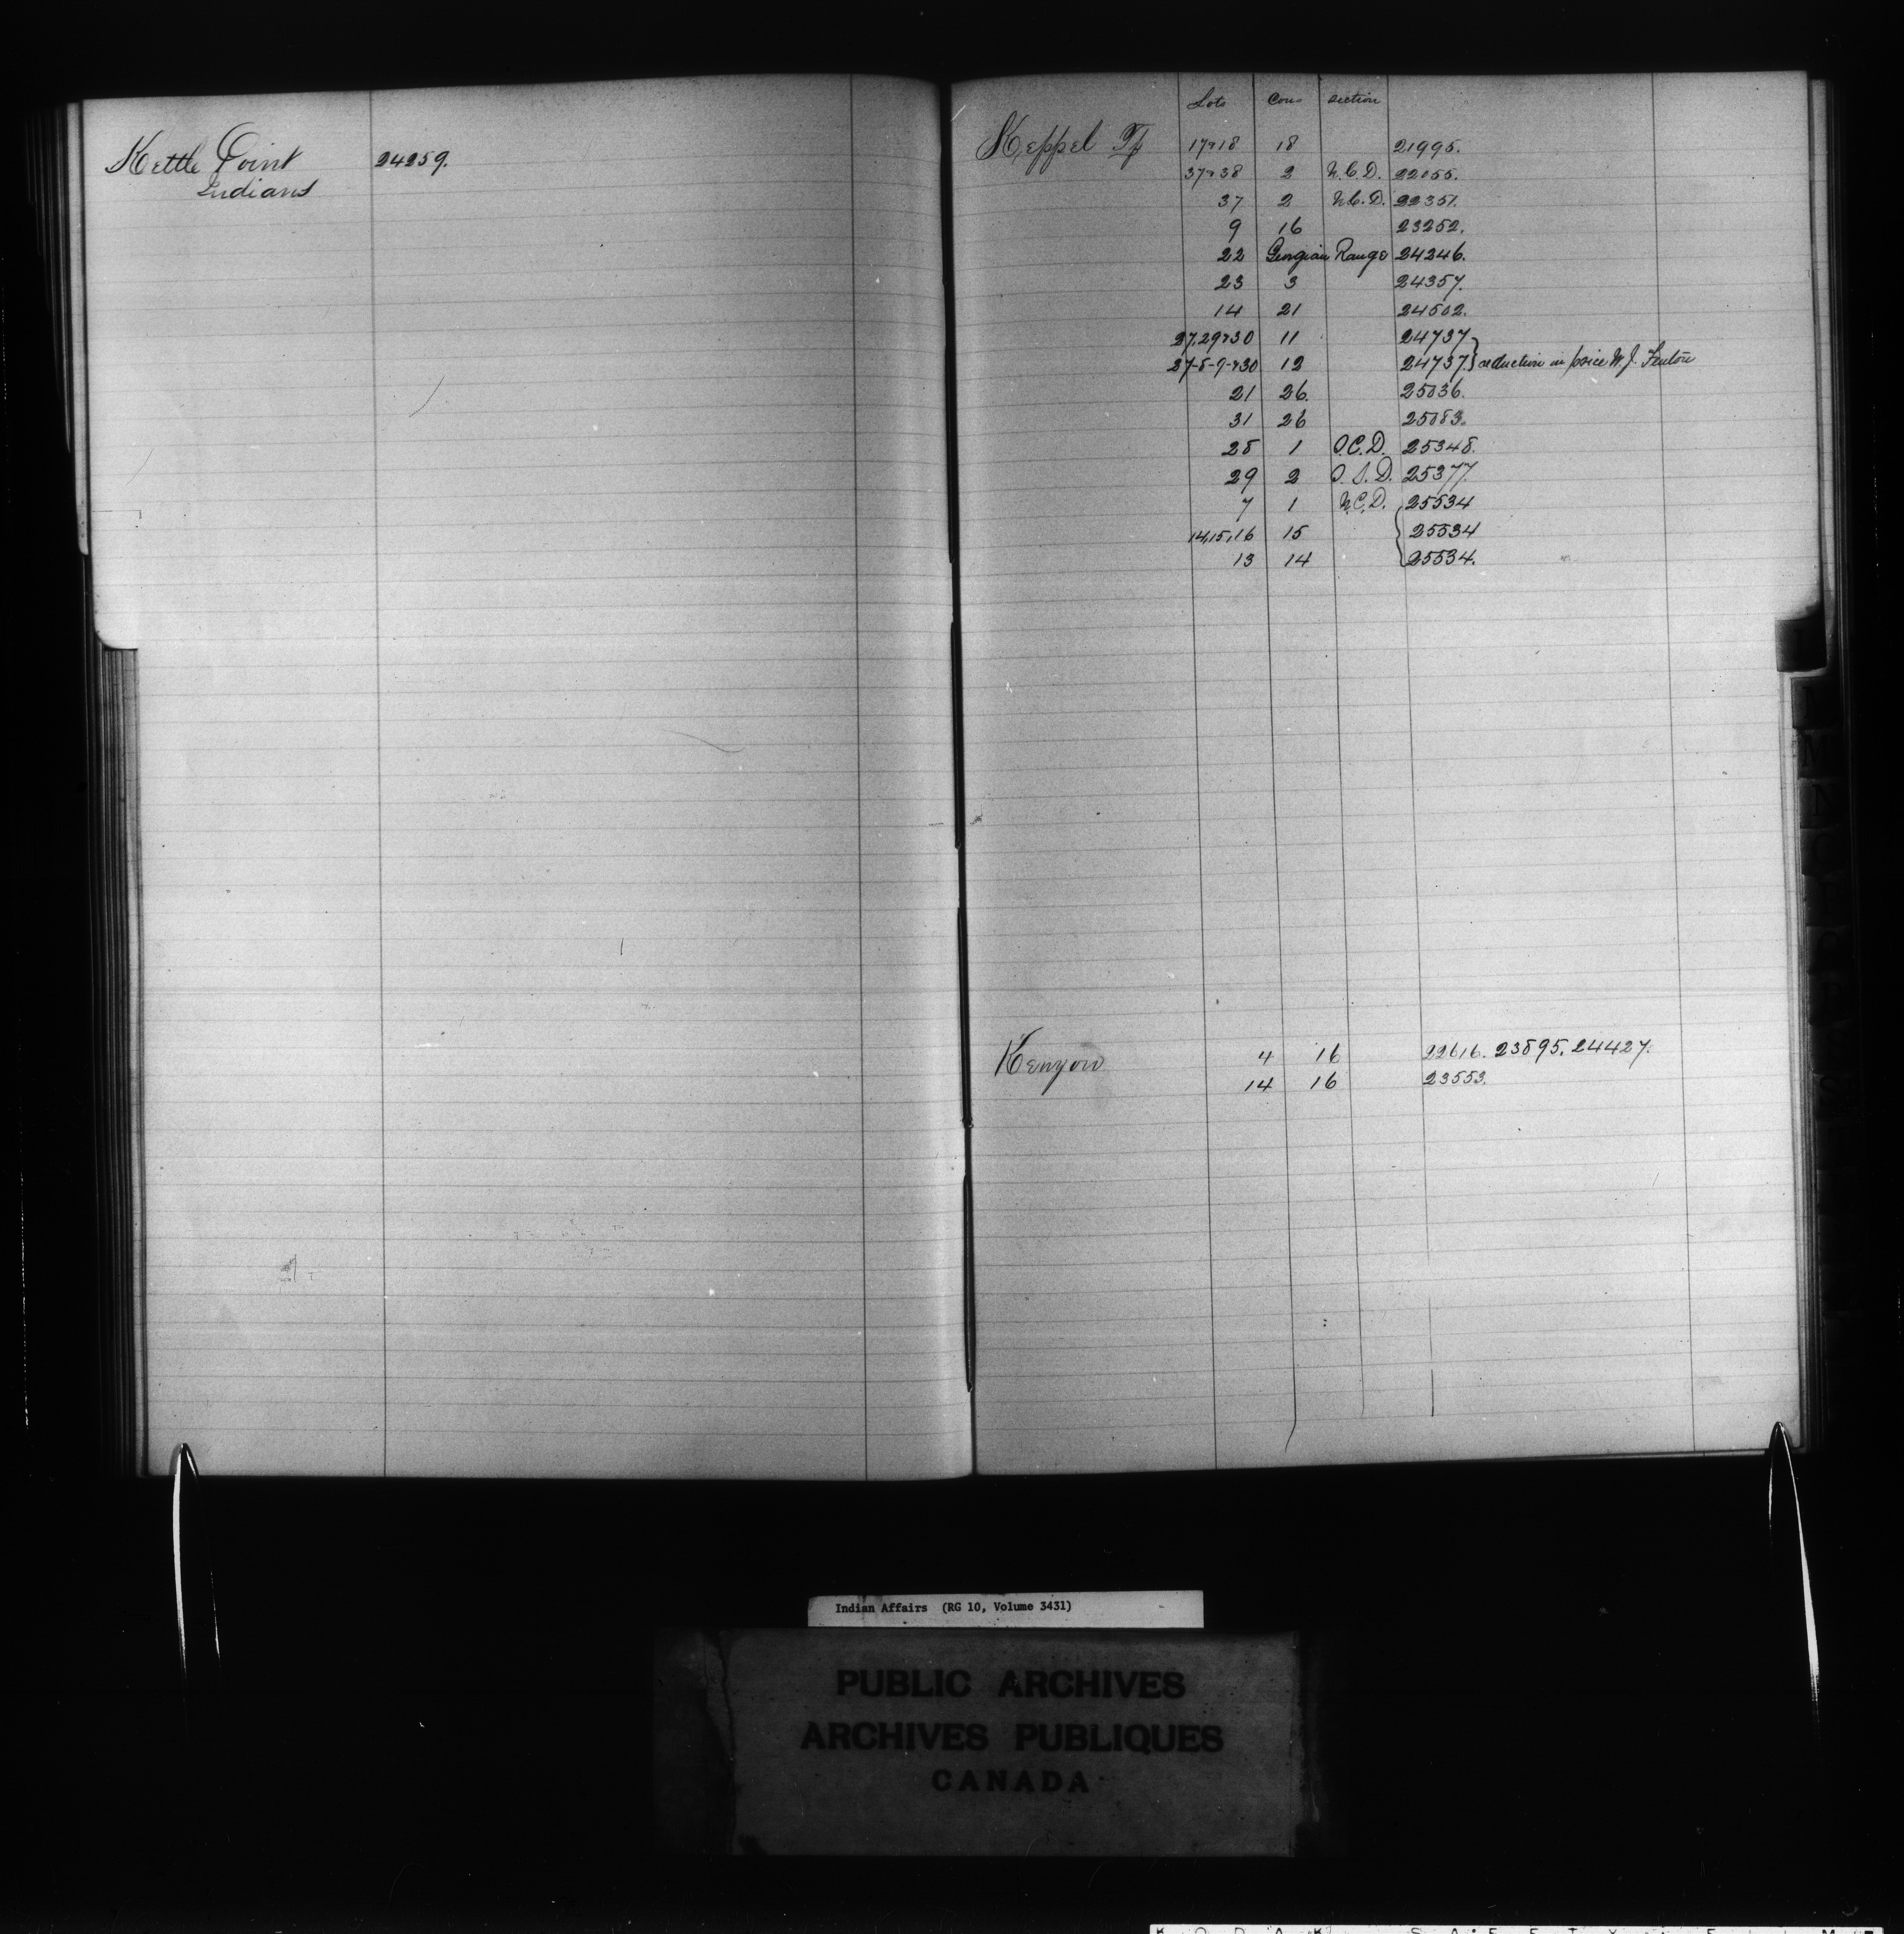 Kettle Point 24259.
Indians
Lots Con. Section
Keppel Tp 17+18 18 21995.
37+38 2 N.C.D. 22055.
37 2 N.C.D. 22351.
9 16 23252.
22 Georgian Range 24246.
23 3 24357.
14 21 24502.
27.29+30 11 24737
27-8-9-+30 12 24737. } reduction in price W. J. Fenton
21 26. 25036.
31 26 25083.
28 1 O.C.D. 25348.
29 2 O.S.D. 25377.
7 1 N.C.D. 25534
14,15,16 15 25534
13 14 25534.
Kenyon 4 16 22616. 23895. 24427.
14 16 23553.
Indian Affairs (RG 10, Volume 3431)
PUBLIC ARCHIVES
ARCHIVES PUBLIQUES
CANADA